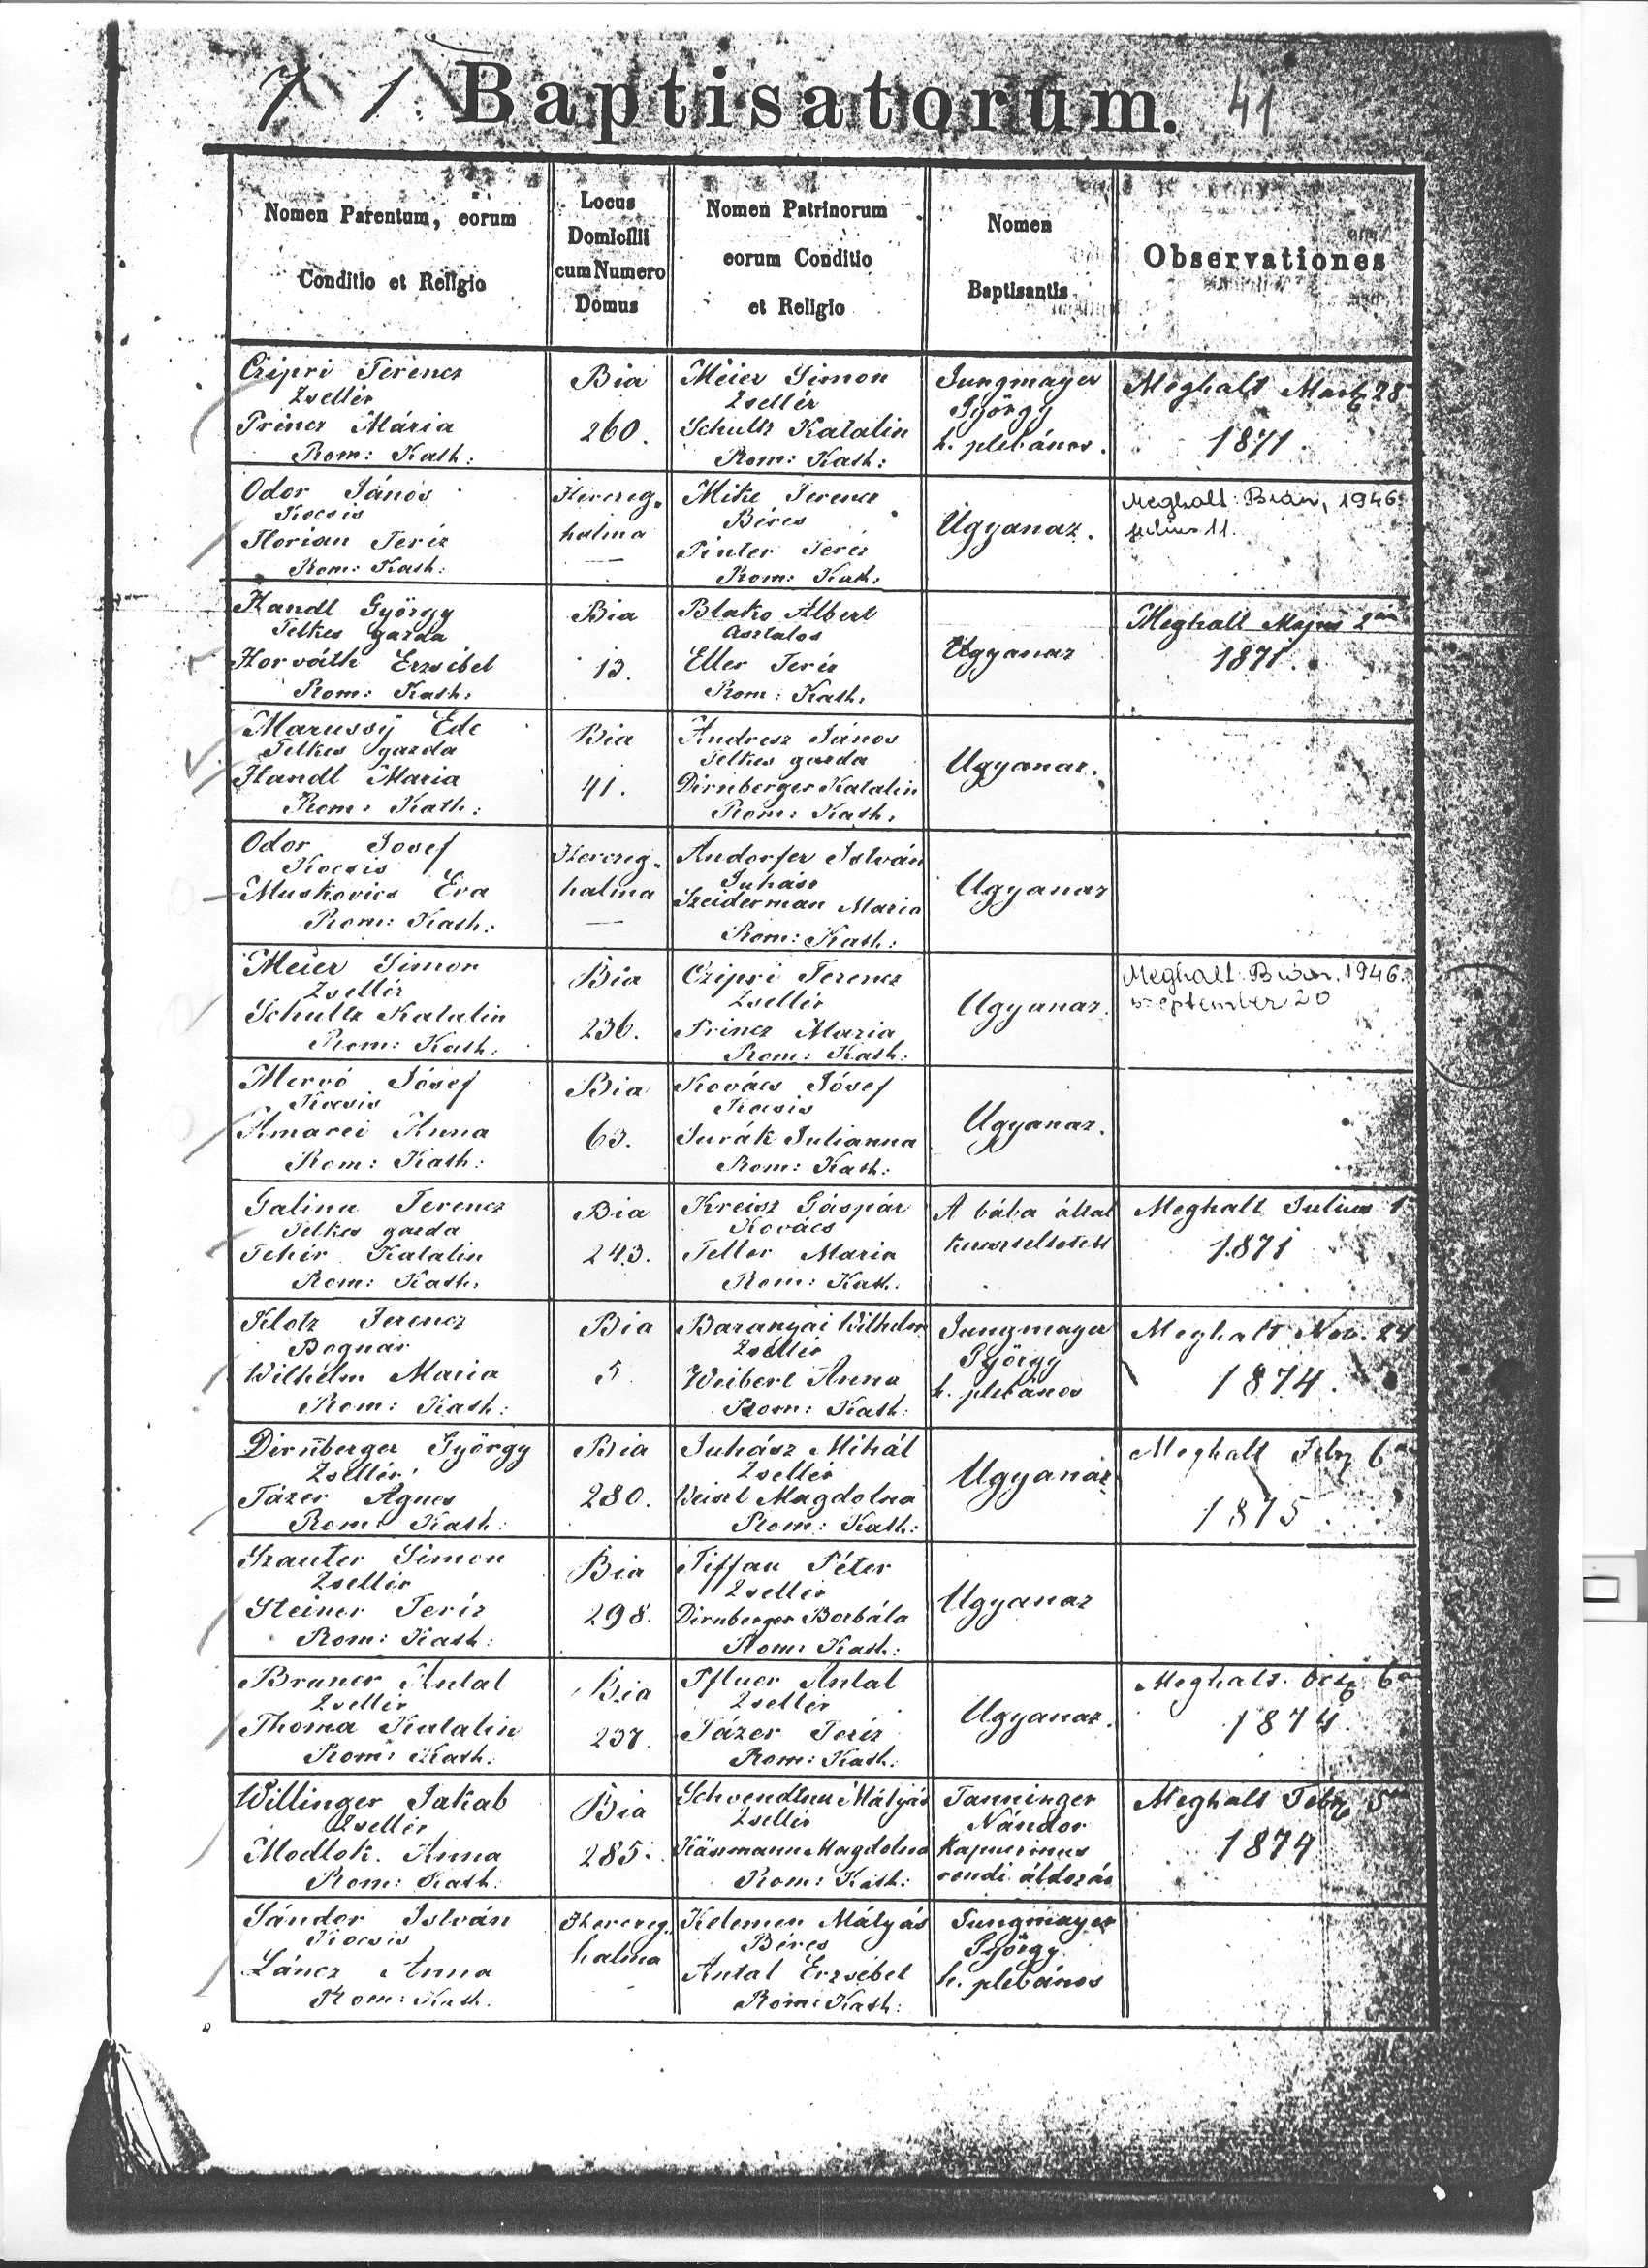 7 1. Baptisatorum. 41
Nomen Parentum, eorum
Conditio et Religio
Locus
Domicilii
cum Numero
Domus
Nomen Patrinorum
eorum Conditio
et Religio
Nomen
Baptisantis
Observationes
Czipri Ferencz
Zsellér
Princz Mária
Rom: Kath:
Bia
260.
Meier Simon
Zsellér
Schultz Katalin
Rom: Kath:
Jungmayer
György
h. plebános.
Meghalt Martz 28
1871.
Odor János
Kocsis
Florian Teréz
Rom: Kath:
Herczeg-
halma
—
Mike Ferencz
Béres
Pinter Teréz
Rom: Kath:
Ugyanaz.
Meghalt: Bián, 1946.
julius 11.
Handl György
Telkes gazda
Horváth Erzsébet
Rom: Kath:
Bia
13.
Blako Albert
Asztalos
Eller Teréz
Rom: Kath:
Ugyanaz
Meghalt Majus 2án
1871.
Marussy Ede
Telkes gazda
Handl Maria
Rom: Kath:
Bia
41.
Andresz János
Telkes gazda
Dirnberger Katalin
Rom: Kath:
Ugyanaz.
Odor Josef
Kocsis
Muskovics Éva
Rom: Kath:
Herczeg-
halma
—
Andorfer István
Juhász
Szeiderman Maria
Rom: Kath:
Ugyanaz
Meier Simon
Zsellér
Schultz Katalin
Rom: Kath:
Bia
236.
Czipri Ferencz
Zsellér
Princz Maria
Rom: Kath:
Ugyanaz.
Meghalt: Bián. 1946.
szeptember 20
Mervó Jósef
Kocsis
Amarei Anna
Rom: Kath:
Bia
63.
Kovács Jósef
Kocsis
Turák Julianna
Rom: Kath:
Ugyanaz.
Galina Ferencz
Telkes gazda
Fehér Katalin
Rom: Kath:
Bia
243.
Kreisz Gáspár
Kovács
Feller Maria
Rom: Kath:
A bába által
kereszteltetett
Meghalt Julius 1
1871
Klotz Ferencz
Bognár
Wilhelm Maria
Rom: Kath:
Bia
5.
Baranyai Wilhelm
Zsellér
Weibert Anna
Rom: Kath:
Jungmayer
György
h. plebános
Meghalt Nov. 24
1874.
Dirnberger György
Zsellér
Fázer Agnes
Rom: Kath:
Bia
280.
Juhász Mihál
Zsellér
Weiszt Magdolna
Rom: Kath:
Ugyanaz
Meghalt Febr 6
1875.
Szauter Simon
Zsellér
Steiner Teréz
Rom: Kath:
Bia
298.
Tiffan Péter
Zsellér
Dirnberger Borbála
Rom: Kath:
Ugyanaz
Bruner Antal
Zsellér
Thoma Katalin
Rom: Kath:
Bia
237.
Pfluer Antal
Zsellér
Fázer Teréz
Rom: Kath:
Ugyanaz.
Meghalt 6
1874
Willinger Jakab
Zsellér
Modlok Anna
Rom: Kath:
Bia
285.
Mátyás
Zsellér
Käsmann Magdolna
Rom: Kath:
Tanninger
Nándor
Kapucinus
rendi áldozár
Meghalt Febr 5
1874
Sándor István
Kocsis
Láncz Anna
Rom: Kath:
Herczeg-
halma
Kelemen Mátyás
Béres
Antal Erzsébet
Rom: Kath:
Jungmayer
György
h. plebános